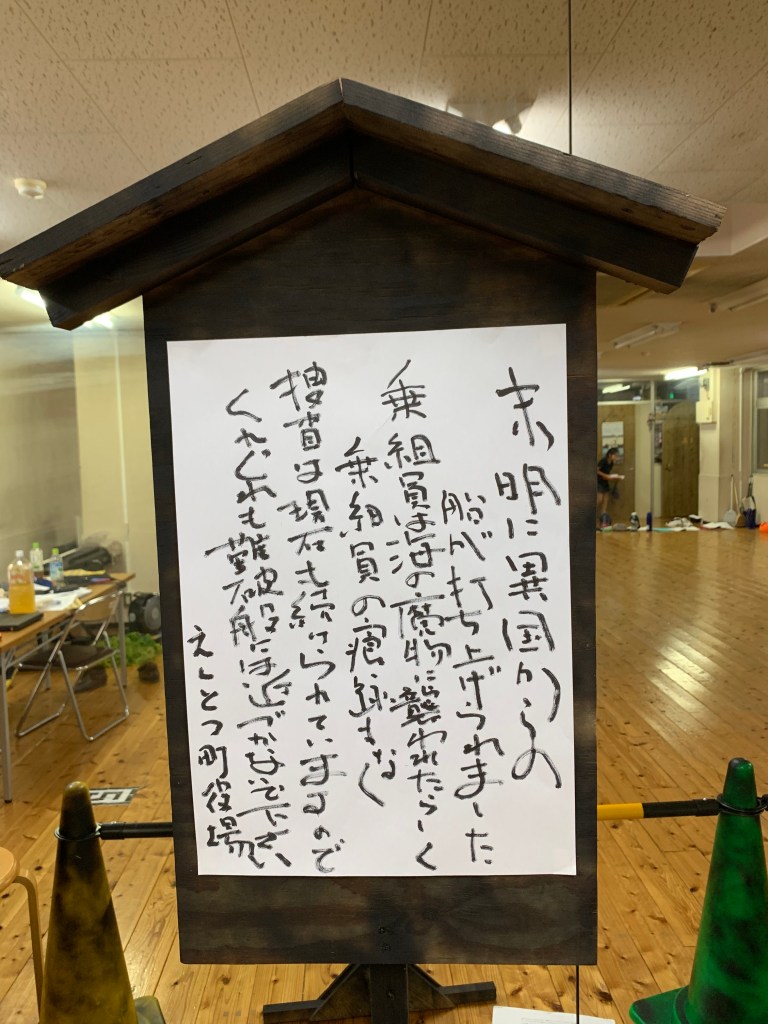 未明に異国からの
船が打ち上げられました
乗組員は海の魔物に襲われたらしく
乗組員の痕跡もなく
捜査は現在も続けられていますので
くれぐれも難破船には近づかないで下さい
えんとつ町役場